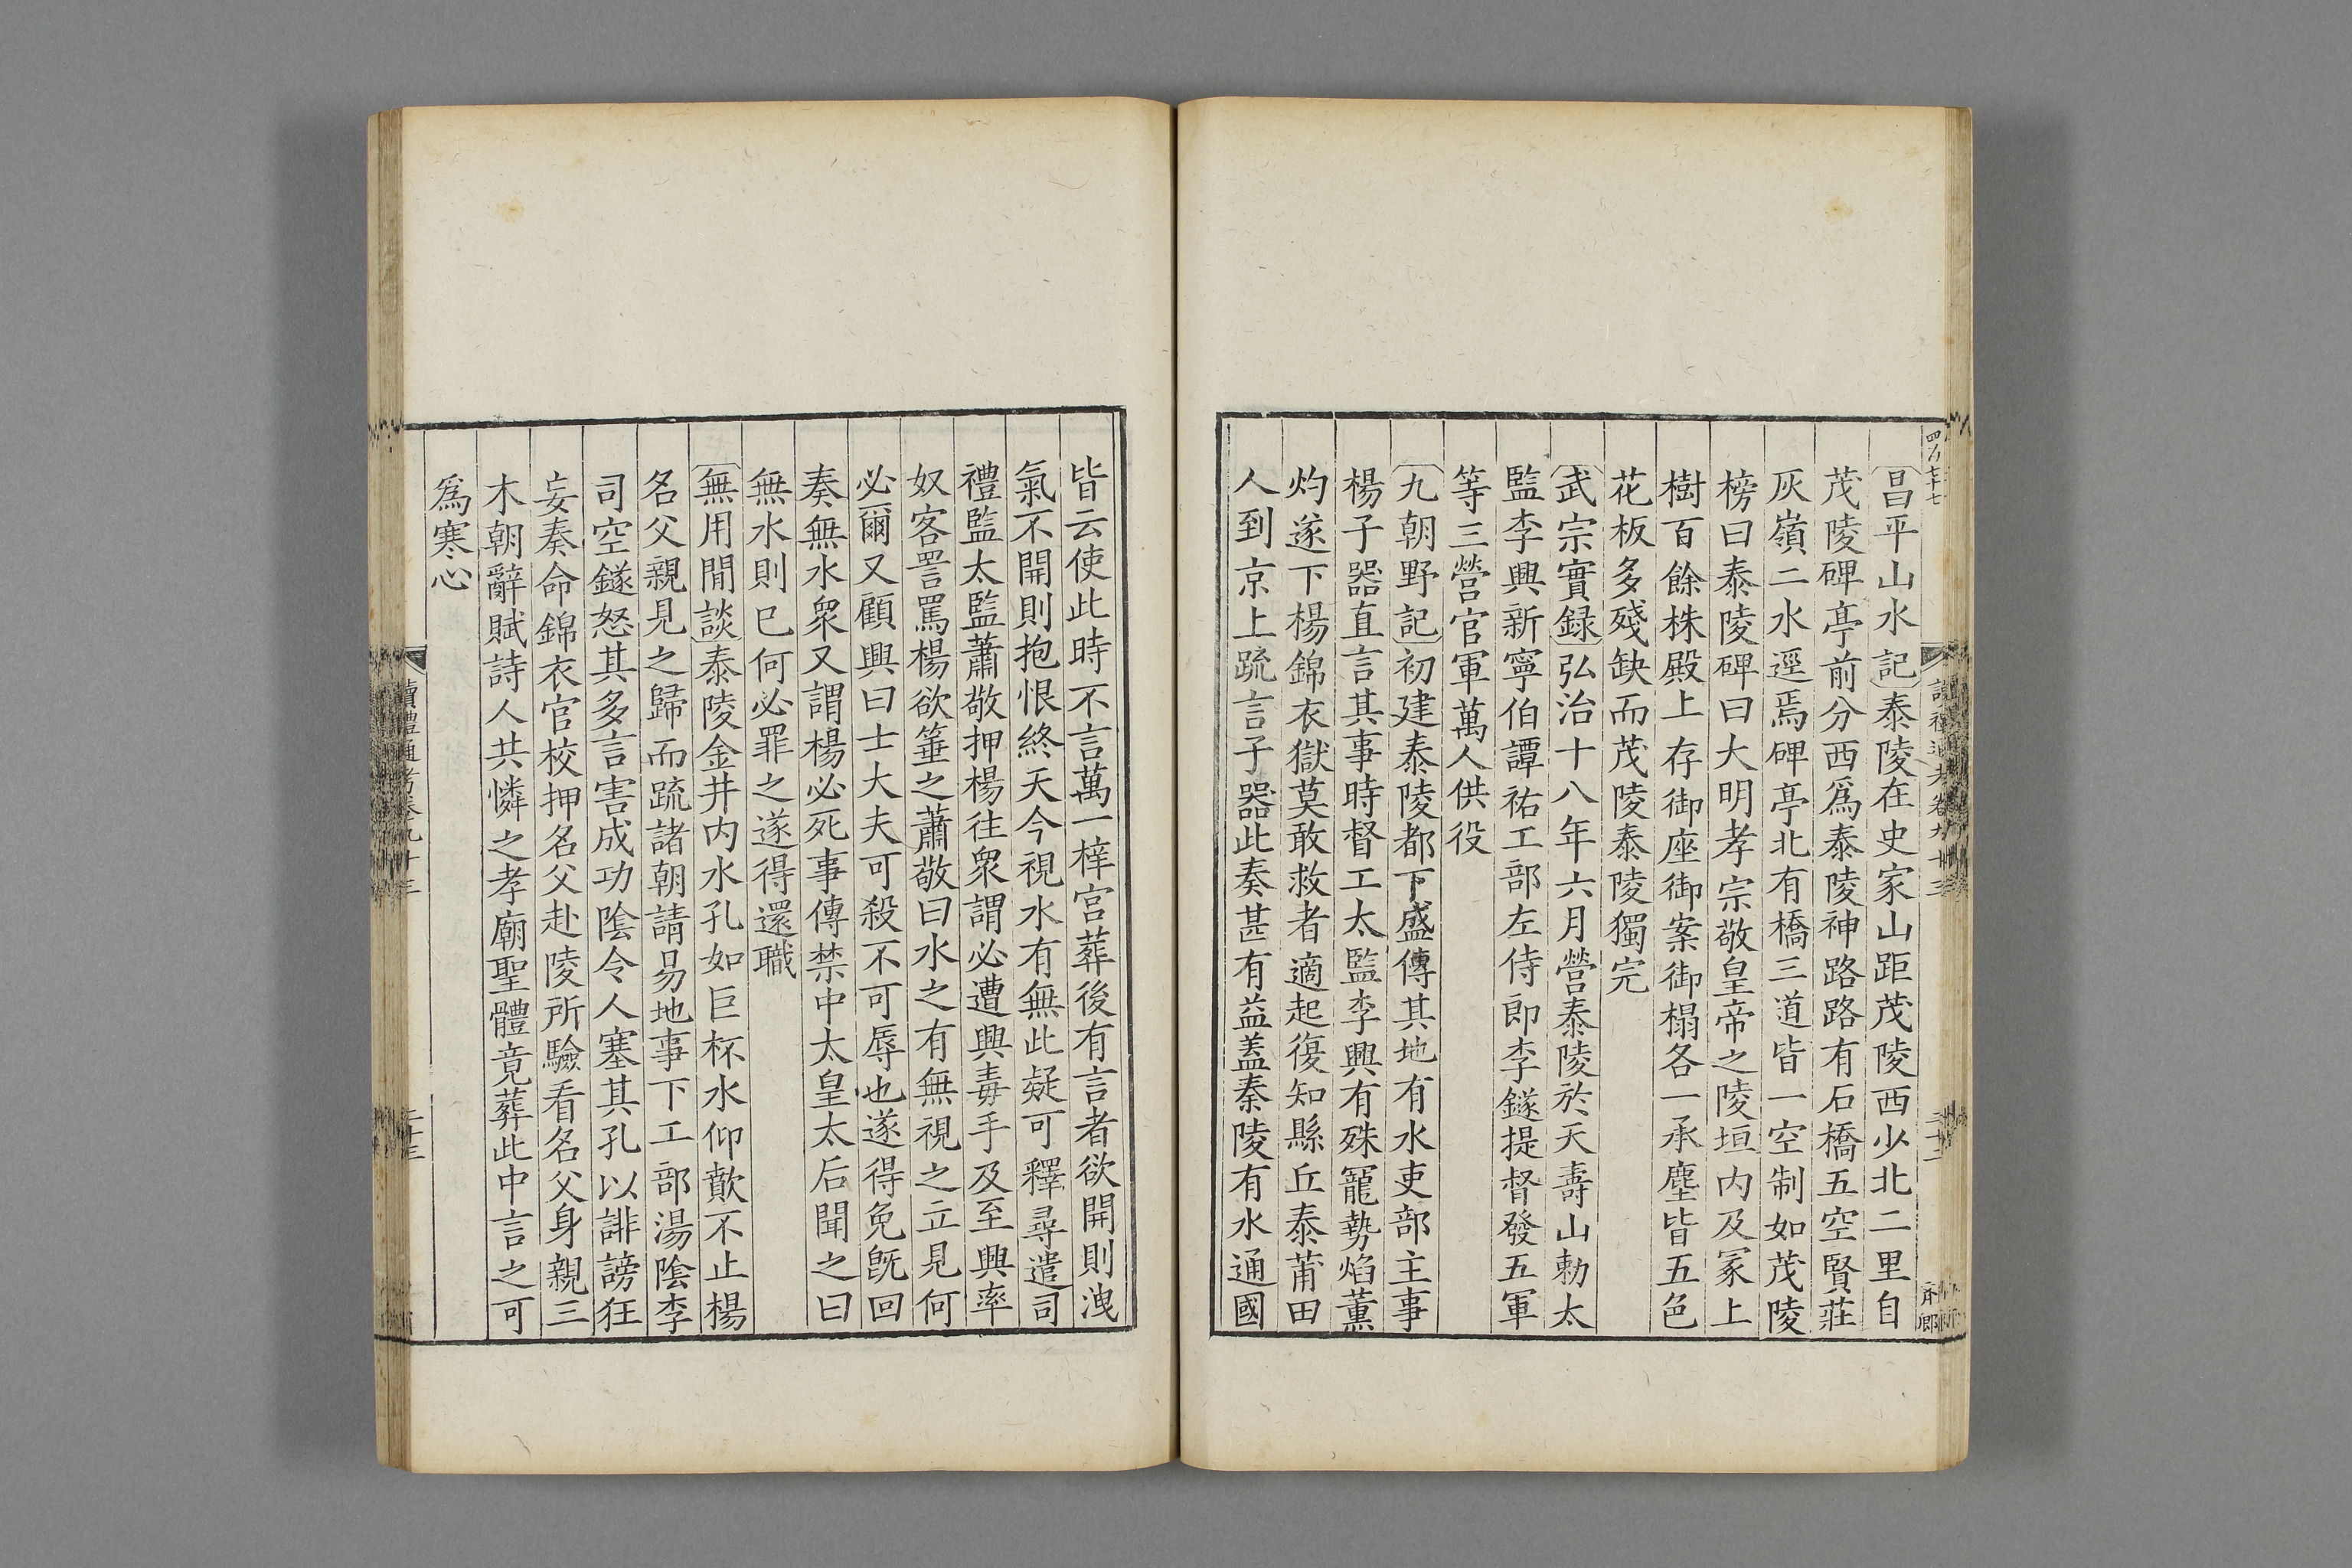 四百七十七
昌平山水記泰陵在史家山距茂陵西少北二里自
茂陵碑亭前分西爲泰陵神路路有石橋五空賢莊
灰嶺二水逕焉碑亭北有橋三道皆一空制如茂陵
榜曰泰陵碑曰大明孝宗敬皇帝之陵垣内及冢上
樹百餘株殿上存御座御案御榻各一承塵皆五色
花板多殘缺而茂陵泰陵獨完
武宗實録弘治十八年六月營泰陵於天壽山勅太
監李興新寧伯譚祐工部左侍郎李鐩提督發五軍
等三營官軍萬人供役
九朝野記初建泰陵都下盛傳其地有水吏部主事
楊子器直言其事時督工太監李興有殊寵勢焰薰
灼遂下楊錦衣獄莫敢救者適起復知縣丘泰莆田
人到京上疏言子器此奏甚有益蓋秦陵有水通國
皆云使此時不言萬一梓宫葬後有言者欲開則洩
氣不開則抱恨終天今視水有無此疑可釋尋遣司
禮監太監蕭敬押楊往衆謂必遭興毒手及至興率
奴客詈罵楊欲箠之蕭敬曰水之有無視之立見何
必爾又顧興曰士大夫可殺不可辱也遂得免旣回
奏無水衆又謂楊必死事傳禁中太皇太后聞之曰
無水則已何必罪之遂得還職
無用閒談泰陵金井内水孔如巨杯水仰歕不止楊
名父親見之歸而疏諸朝請易地事下工部湯陰李
司空鐩怒其多言害成功陰令人塞其孔以誹謗狂
妄奏命錦衣官校押名父赴陵所驗看名父身親三
木朝辭賦詩人共憐之孝廟聖體竟葬此中言之可
爲寒心
讀禮通考卷九十三
二十三